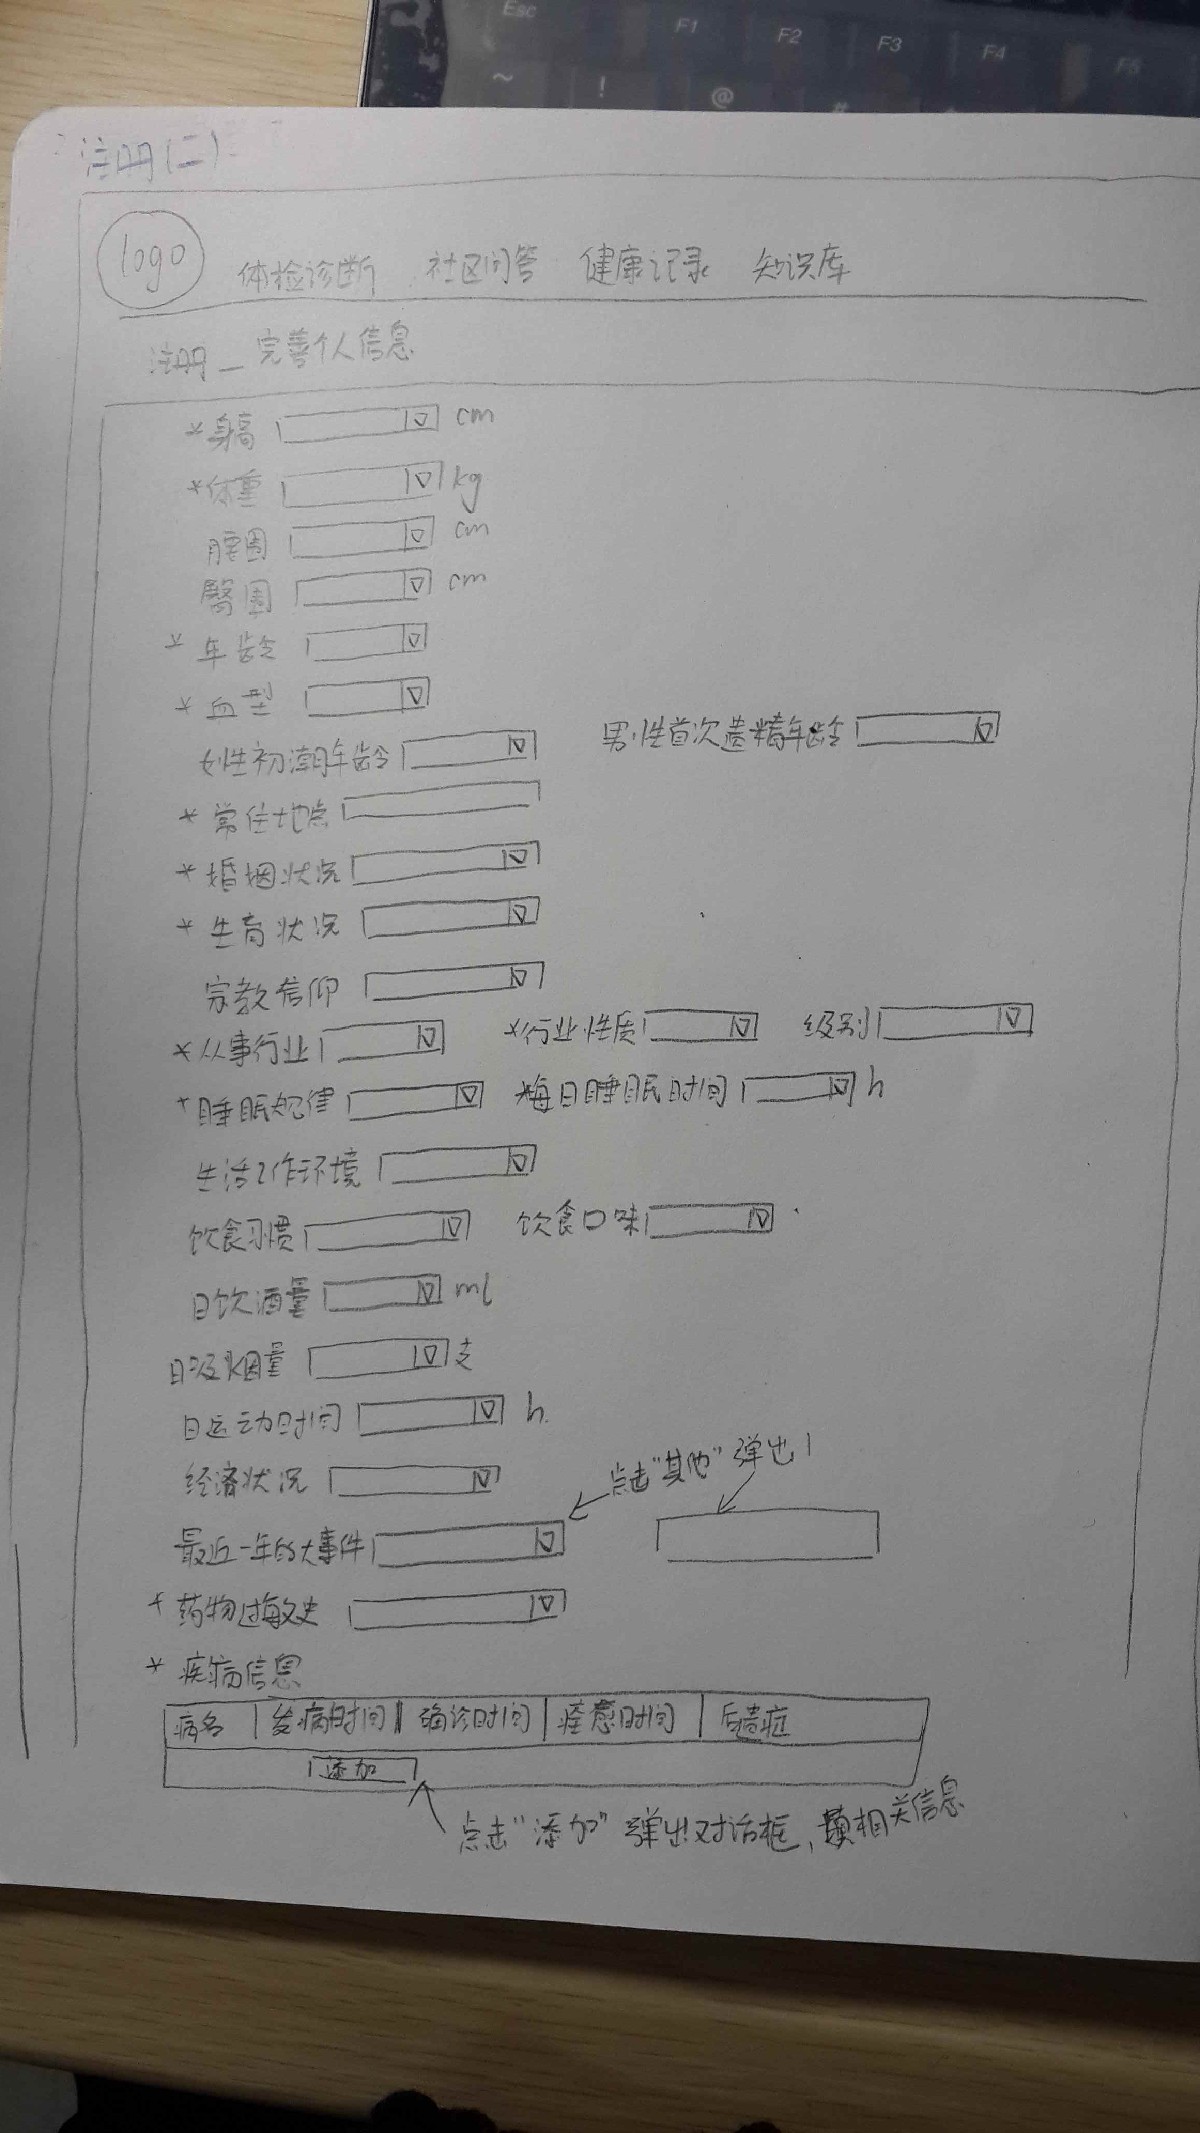 Esc F1 F2 F3 F4 F5
~ ! @ #
注册(二)
logo 体检诊断 社区问答 健康记录 知识库
注册_完善个人信息
*身高 cm
*体重 kg
腰围 cm
臀围 cm
*年龄
*血型
女性初潮年龄 男性首次遗精年龄
*常住地点
*婚姻状况
*生育状况
宗教信仰
*从事行业 *行业性质 级别
*睡眠规律 *每日睡眠时间 h
生活工作环境
饮食习惯 饮食口味
日饮酒量 ml
日吸烟量 支
日运动时间 h
经济状况 点击"其他"弹出
最近一年的大事件
*药物过敏史
*疾病信息
病名 发病时间 确诊时间 痊愈时间 后遗症
添加
点击"添加"弹出对话框,填相关信息